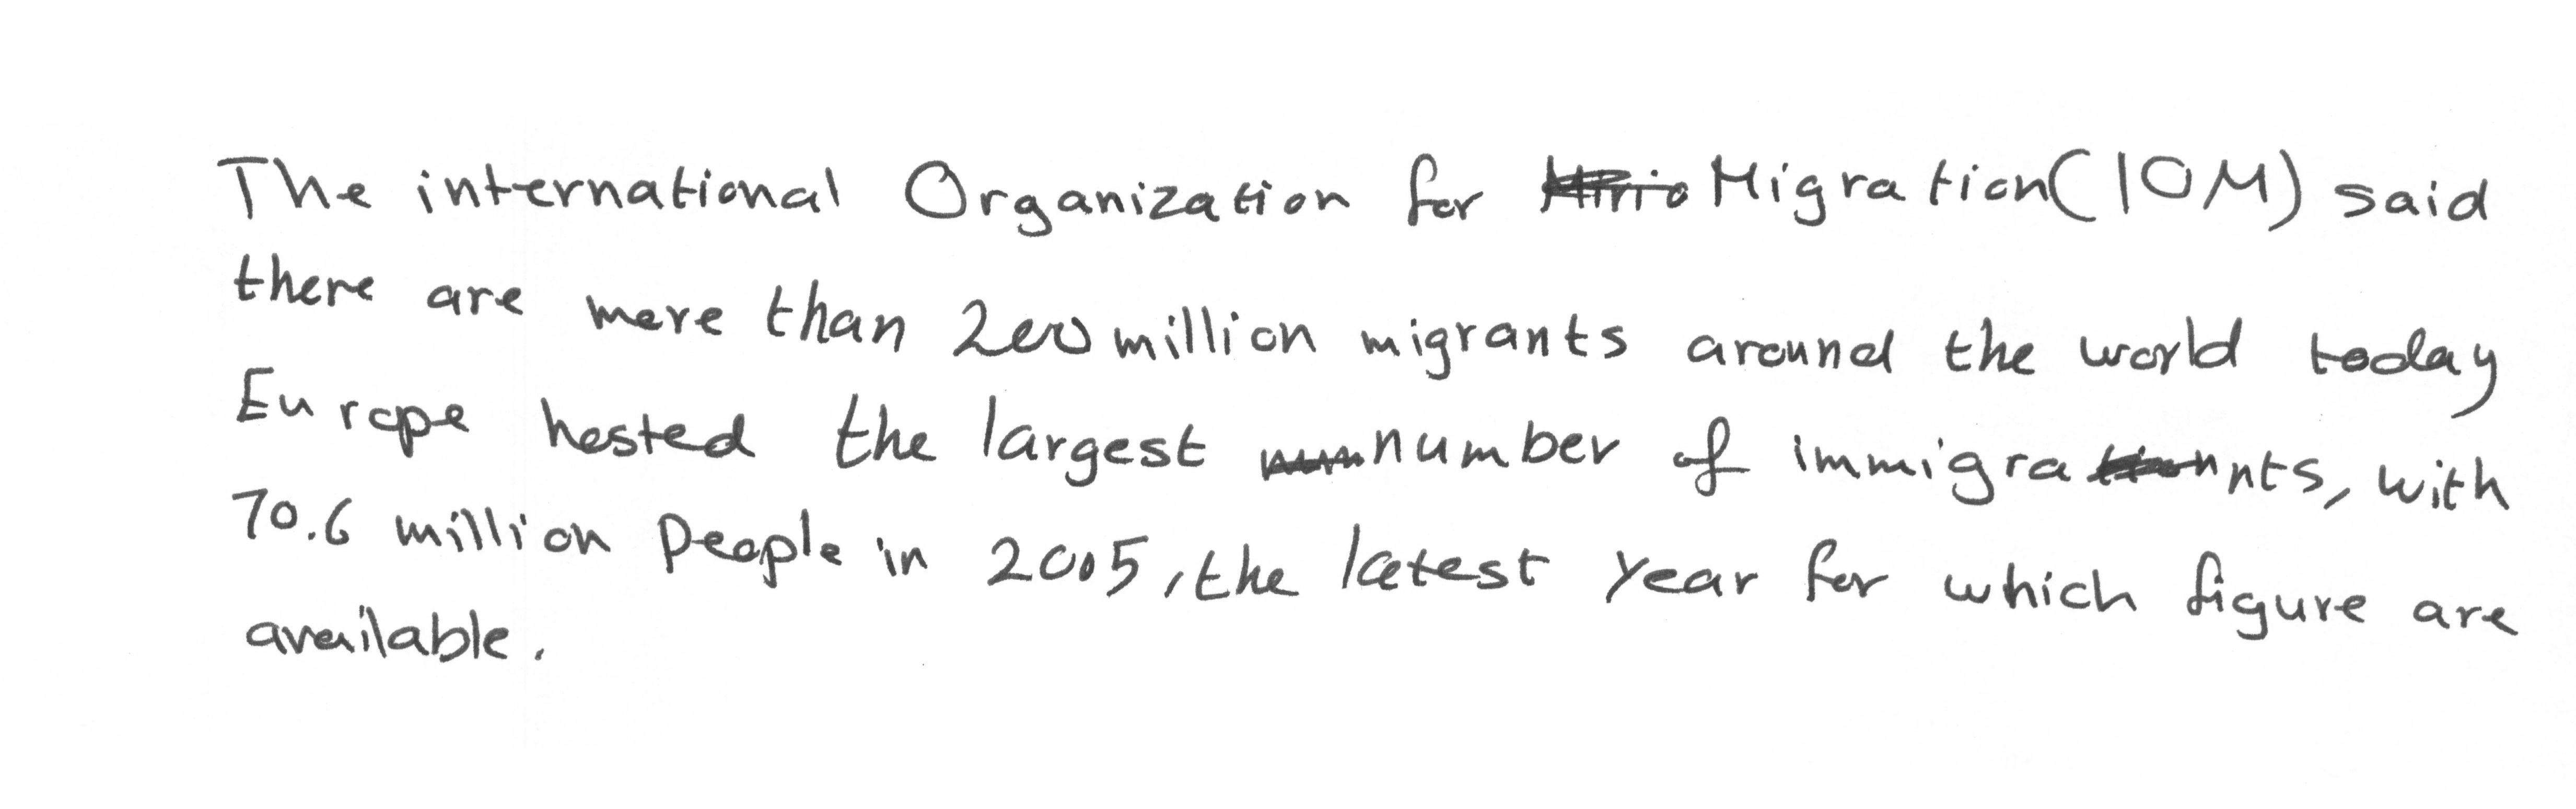 The international Organization for Migration (IOM) said
there are more than 200 million migrants around the world today
Europe hosted the largest number of immigrants, with
70.6 million People in 2005, the latest year for which figure are
available.